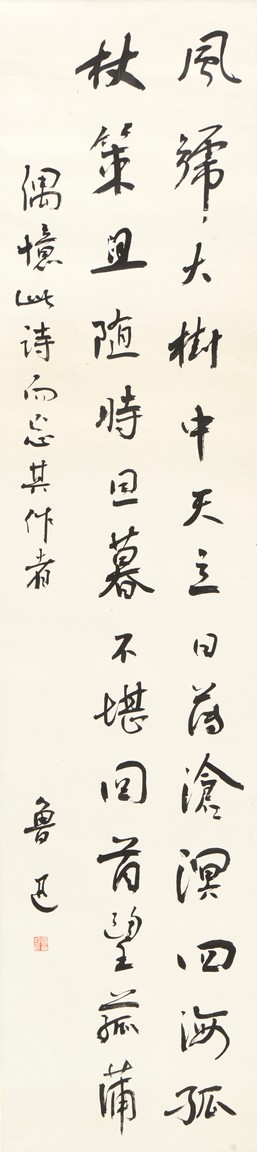 風號大樹中天立日薄滄溟四海孤
杖策且随時旦暮不堪回首望菰蒲
偶憶此詩而忘其作者
魯迅